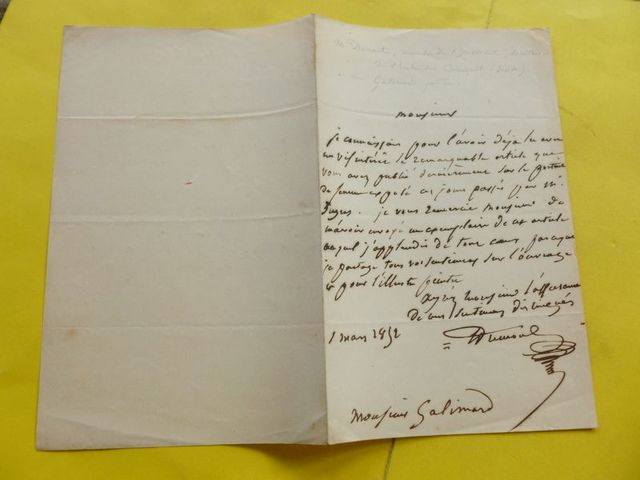 Monsieur
je connaissais pour l'avoir déjà lu avec
un vif intérêt le remarquable article que
vous avez publié dernièrement sur le portrait
de femme exposé ces jours passés par Mr
Ingres. je vous remercie Monsieur de
m'avoir envoyé un exemplaire de cet article
auquel j'applaudis de tout cœur, parceque
je partage tous vos sentimens sur l'ouvrage
et pour l'illustre peintre
Agréez Monsieur l'assurance
de mes sentimens distingués
1 mars 1852
Dumont
Monsieur Galimard